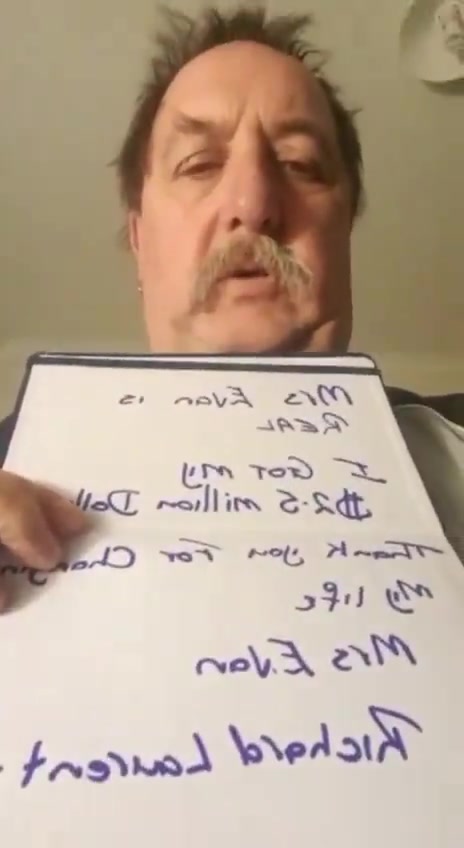 Mrs Evan is
REAL
I GoT my
$2.5 million Doll
Thank you For Changin
my life
Mrs Evan
Richard Laurent